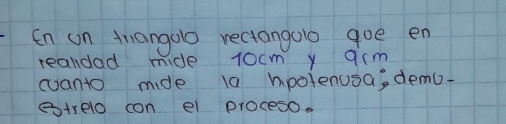 - En un triangulo rectangulo que en
realidad mide 10cm y 9cm
cuanto mide la hipotenusa; demu-
estrelo con el proceso.